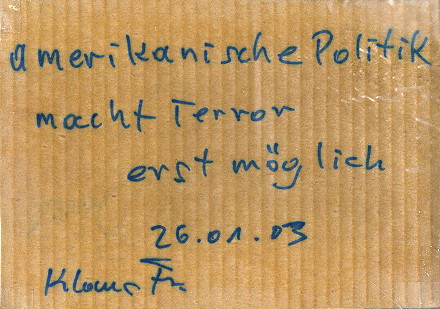 amerikanische Politik
macht Terror
erst möglich
26.01.03
Klaus Fr.